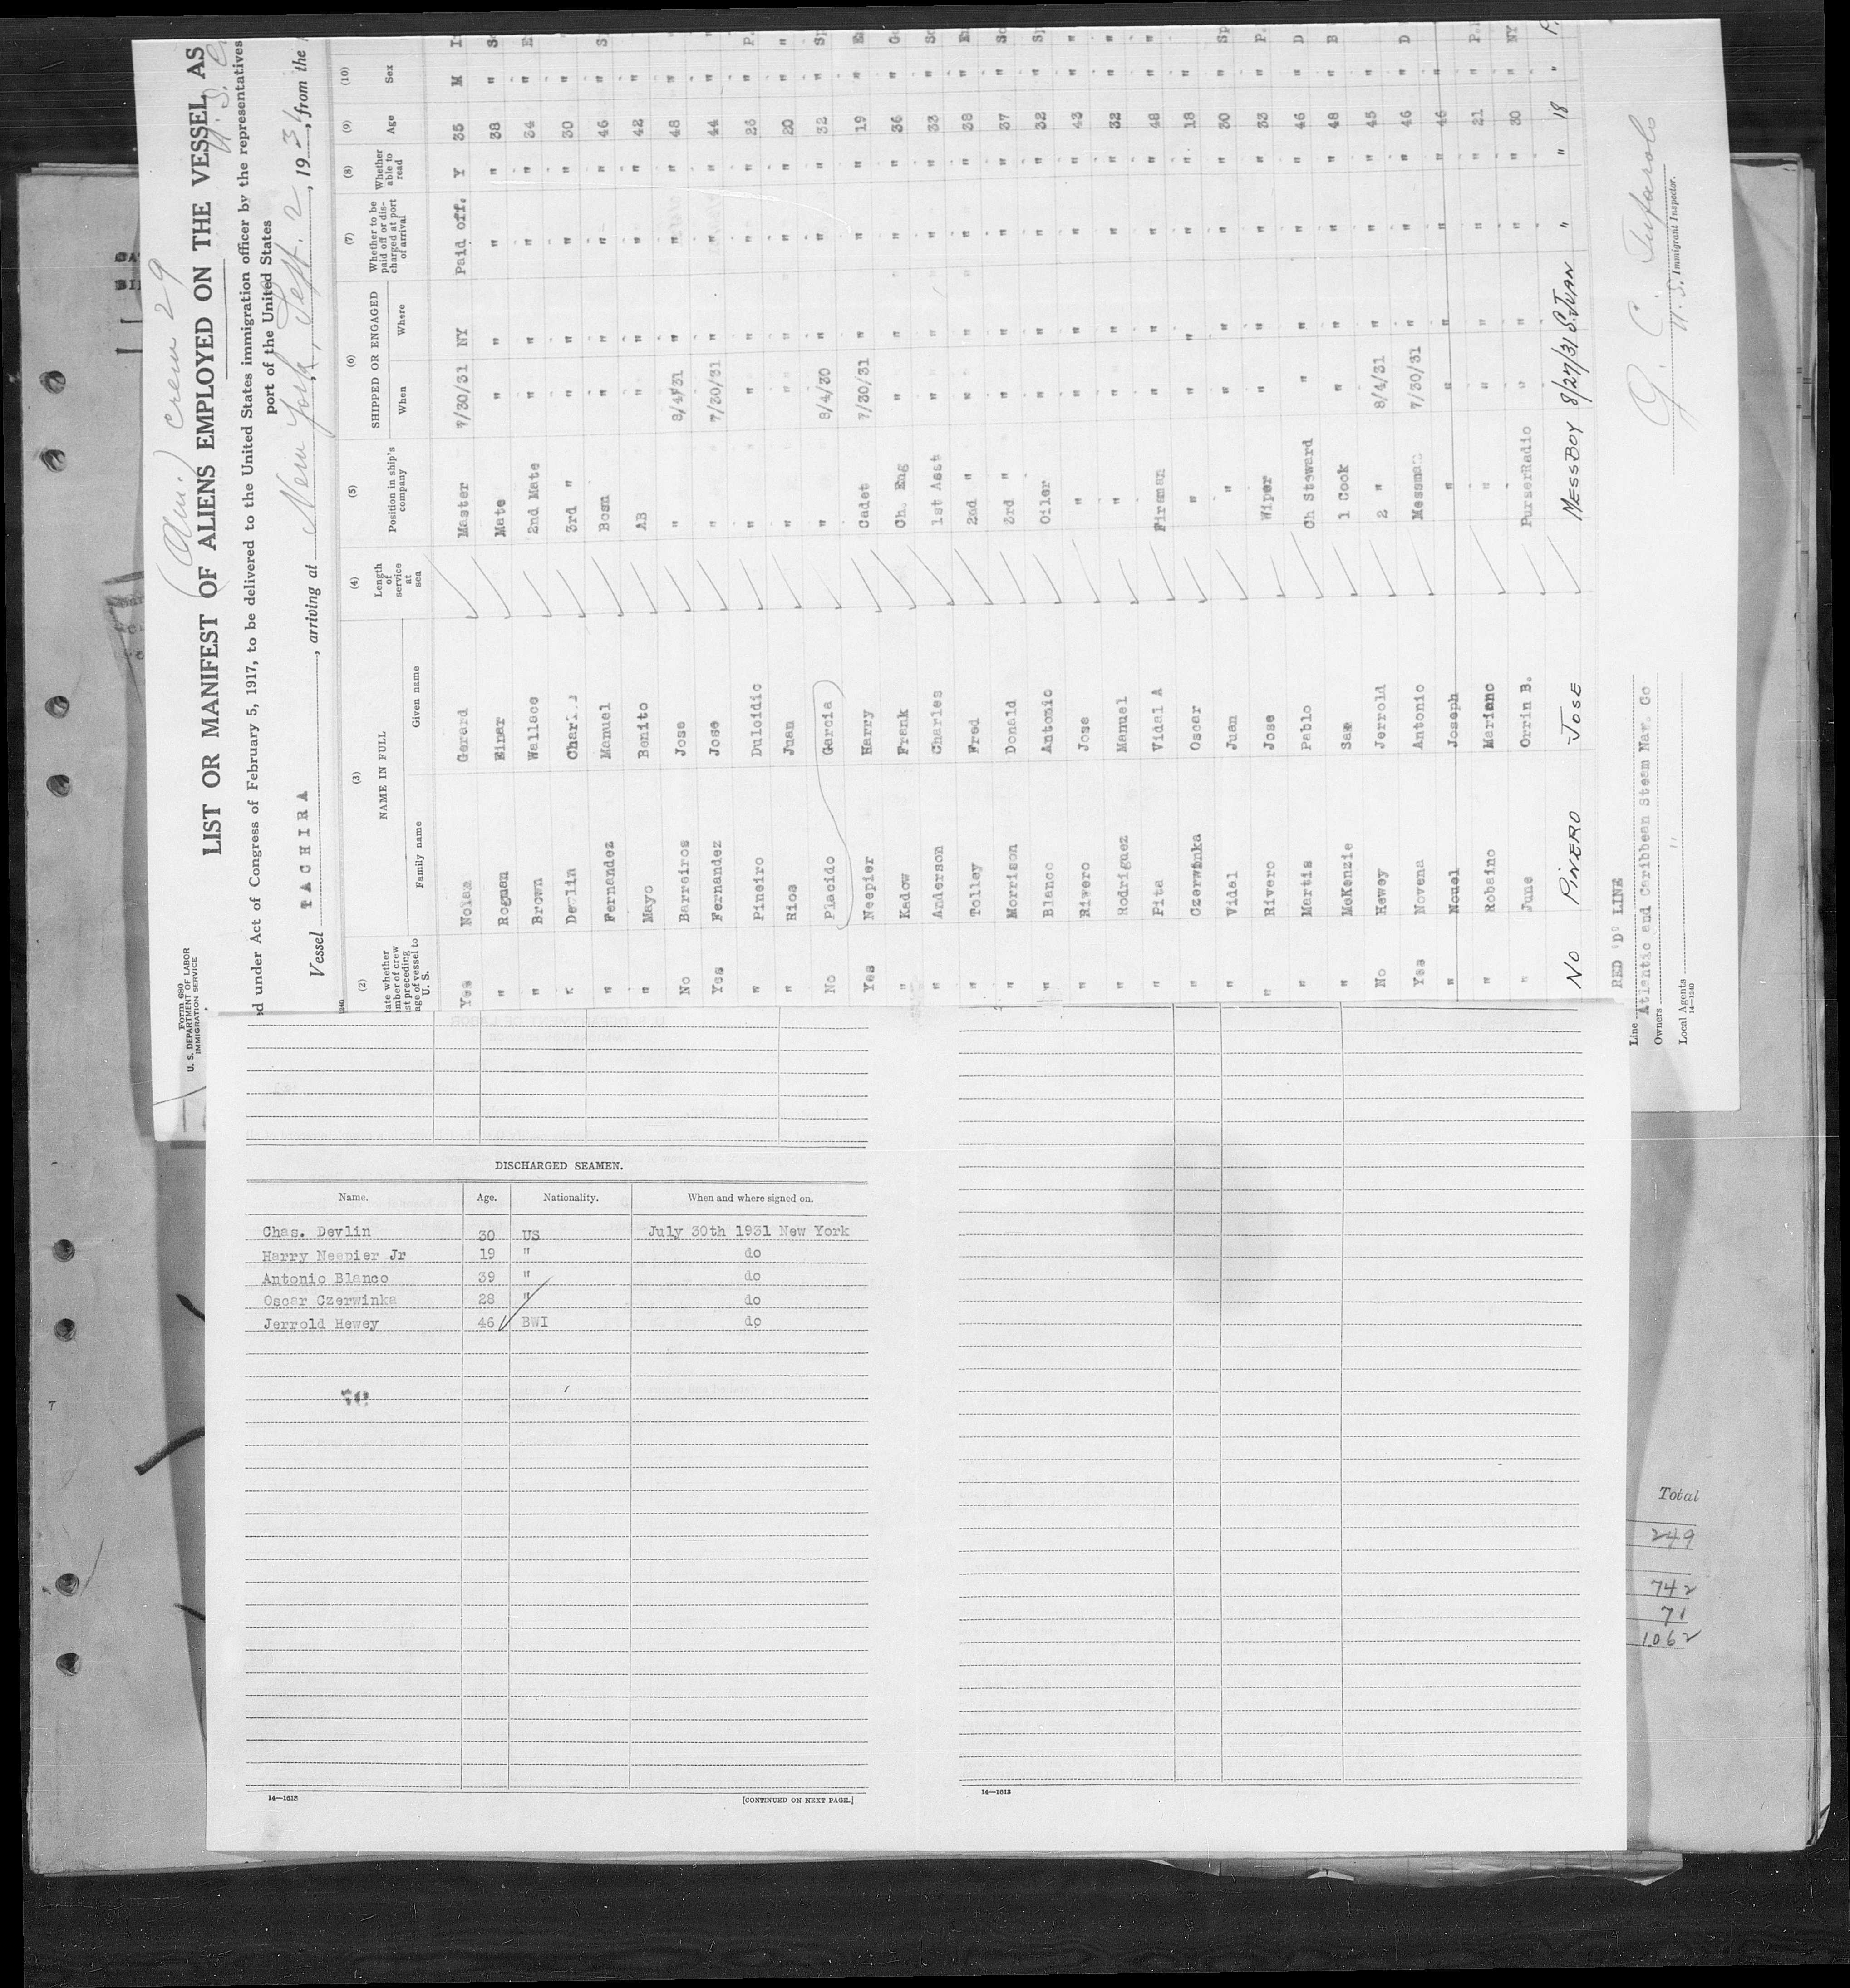 (Am.) crew 29
Form 680
U. S. DEPARTMENT OF LABOR
IMMIGRATION SERVICE
LIST OR MANIFEST OF ALIENS EMPLOYED ON THE VESSEL AS
ed under Act of Congress of February 5, 1917, to be delivered to the United States immigration officer by the representatives
port of the United States
Vessel TACHIRA, arriving at New York, Sept. 2, 1931, from the
(2) (3) (4) (5) (6) (7) (8) (9) (10)
ate whether mber of crew st preceding age of vessel to U. S.
NAME IN FULL
Family name Given name
Length of service at sea
Position in ship's company
SHIPPED OR ENGAGED
When Where
Whether to be paid off or discharged at port of arrival
Whether able to read
Age
Sex
Yes Nolan Gerard Master 7/30/31 NY Paid off. Y 35 M
" Rognan Einar Mate " " " " 38 "
" Brown Wallace 2nd Mate " " " " 34 "
" Devlin Charles 3rd " " " " " 30 "
" Fernandez Manuel Bosn " " " " 46 "
" Mayo Benito AB " " " " 42 "
No Barreiros Jose " 8/4/31 " " " 48 "
Yes Fernandez Jose " 7/30/31 " " " 44 "
" Pineiro Duloidio " " " " " 26 "
" Rios Juan " " " " " 20 "
No Placido Garcia " 8/4/30 " " " 32 "
Yes Neepier Harry Cadet 7/30/31 " " " 19 "
" Kadow Frank Ch. Eng " " " " 36 "
" Anderson Charles 1st Asst " " " " 33 "
" Tolley Fred 2nd " " " " " 38 "
" Morrison Donald 3rd " " " " " 37 "
" Blanco Antonio Oiler " " " " 32 "
" Rivero Jose " " " " " 43 "
" Rodriguez Manuel " " " " " 32 "
" Pita Vidal A Fireman " " " " 48 "
" Czerwinka Oscar " " " " " 18 "
" Vidal Juan " " " " " 30 "
" Rivero Jose Wiper " " " " 33 "
" Martis Pablo Ch Steward " " " " 46 "
" McKenzie Sam 1 Cook " " " " 48 "
No Hewey Jerrold 2 " 8/4/31 " " " 45 "
Yes Novena Antonio Messman 7/30/31 " " " 46 "
" Nouel Joseph " " " " " 46 "
" Robaino Mariano " " " " " 21 "
" June Orrin B. PurserRadio " " " " 30 "
No PINERO JOSE MESSBOY 8/27/31 S. JUAN " " 18 "
Line RED 'D' LINE
Owners Atlantic and Caribbean Steam Nav. Co
Local Agents "
14—1240
U. S. Immigrant Inspector.
DISCHARGED SEAMEN.
Name. Age. Nationality. When and where signed on.
Chas. Devlin 30 US July 30th 1931 New York
Harry Neepier Jr 19 " do
Antonio Blanco 39 " do
Oscar Czerwinka 28 " do
Jerrold Hewey 46 BWI do
14—1613
[CONTINUED ON NEXT PAGE.]
14—1613
Total
249
742
71
1062